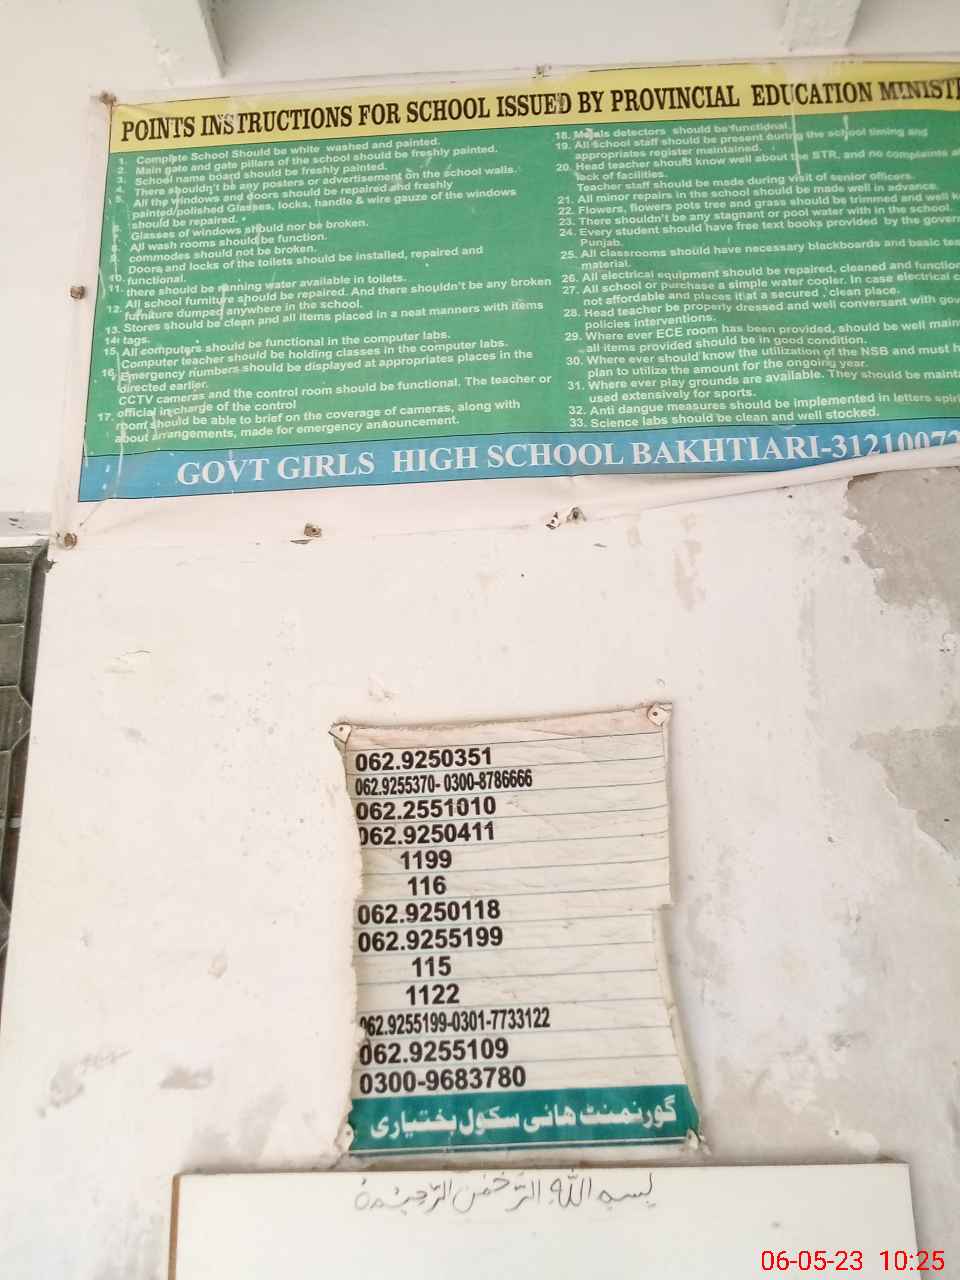 POINTS INSTRUCTIONS FOR SCHOOL ISSUED BY PROVINCIAL EDUCATION
1. Complete School Should be white washed and painted.
2. Main gate and gate pillars of the school should be freshly painted.
3. School name board should be freshly painted.
4. There shouldn't be any posters or advertisement on the school walls.
5. All the windows and doors should be repaired and freshly
painted/polished Glasses, locks, handle & wire gauze of the windows
should be repaired.
6. Glasses of windows should nor be broken.
8. All wash rooms should be function.
9. commodes should not be broken.
Doors and locks of the toilets should be installed, repaired and
10. functional.
11. there should be running water available in toilets.
All school furniture should be repaired. And there shouldn't be any broken
12. furniture dumped anywhere in the school.
13. Stores should be clean and all items placed in a neat manners with items
14. tags.
15. All computers should be functional in the computer labs.
Computer teacher should be holding classes in the computer labs.
16. Emergency numbers should be displayed at appropriates places in the
directed earlier.
CCTV cameras and the control room should be functional. The teacher or
17. official in charge of the control
room should be able to brief on the coverage of cameras, along with
about arrangements, made for emergency announcement.
18. Metals detectors should be functional.
19. All school staff should be present during the school timing and
appropriates register maintained.
20. Head teacher should know well about the STR, and no complaints
lack of facilities.
Teacher staff should be made during visit of senior officers.
21. All minor repairs in the school should be made well in advance.
22. Flowers, flowers pots tree and grass should be trimmed and well
23. There shouldn't be any stagnant or pool water with in the school.
24. Every student should have free text books provided by the
Punjab.
25. All classrooms should have necessary blackboards and basic
material.
26. All electrical equipment should be repaired, cleaned and
27. All school or purchase a simple water cooler. In case electrical
not affordable and places it at a secured , clean place.
28. Head teacher be properly dressed and well conversant with
policies interventions.
29. Where ever ECE room has been provided, should be well
all items provided should be in good condition.
30. Where ever should know the utilization of the NSB and must
plan to utilize the amount for the ongoing year.
31. Where ever play grounds are available. They should be
used extensively for sports.
32. Anti dangue measures should be implemented in letters
33. Science labs should be clean and well stocked.
GOVT GIRLS HIGH SCHOOL BAKHTIARI-3121007
062.9250351
062.9255370- 0300-8786666
062.2551010
062.9250411
1199
116
062.9250118
062.9255199
115
1122
062.9255199-0301-7733122
062.9255109
0300-9683780
گورنمنٹ ہائی سکول بختیاری
بسم اللہ الرحمن الرحیم
06-05-23 10:25